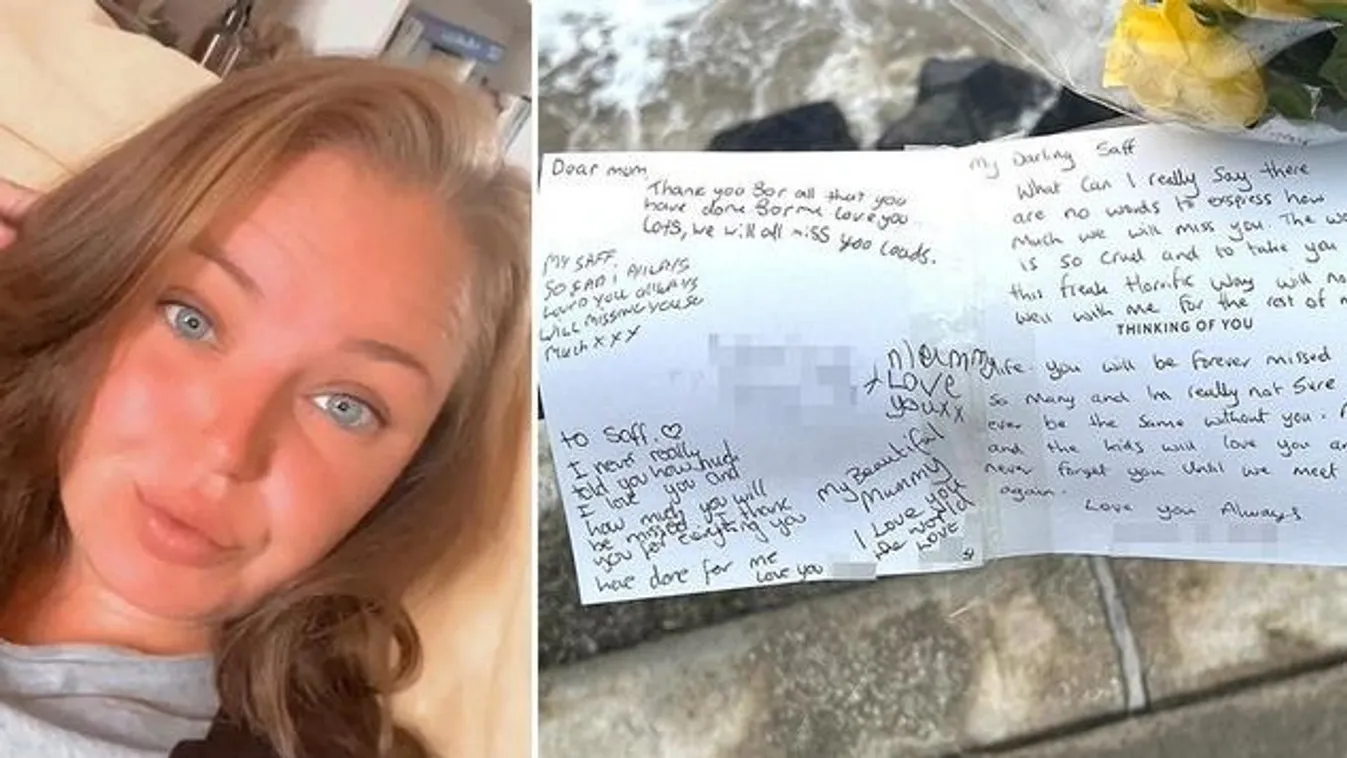 Dear mom,
Thank you for all that you
have done for me love you
lots, we will all miss you loads.
MY SAFF.
SO SAD i ALWAYS
LOVED YOU ALWAYS
WILL MISS YOU SO
MUCH X X X
to Saff. ♡
I never really
told you how much
I love you and
how much you will
be missed I thank
you for everything you
have done for me
love you
+ Love
you xx
My Beautiful
Mummy
I Love you
the world
Love
My Darling Saff
What Can I really Say there
are no words to express how
Much we will miss you. The
is so Cruel and to take you
this freak Horrific Way will
well with me for the rest of
THINKING OF YOU
life. you will be forever missed
So Many and Im really not Sure
ever be the Same without you.
and the kids will love you
never forget you Until we meet
again.
Love you Always